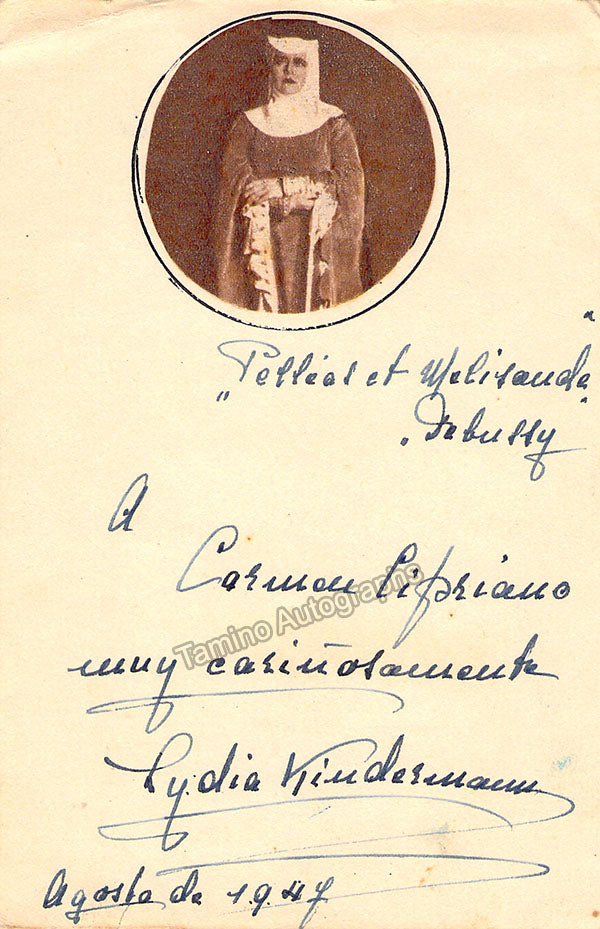 "Pelléas et Melisande"
Debussy
A
Carmen Cipriano
Tamino Autographs
muy cariñosamente
Lydia Kindermann
Agosto de 1947